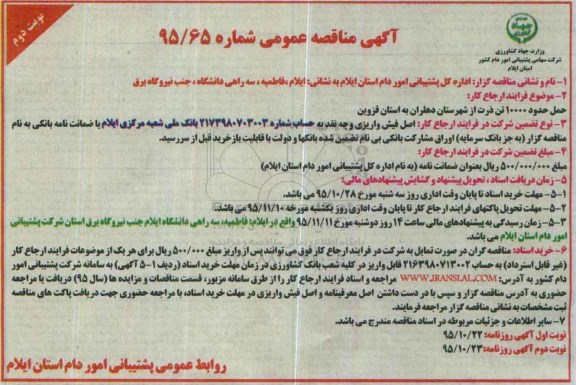 نوبت دوم
آگهی مناقصه عمومی شماره ۹۵/۶۵
وزارت جهاد کشاورزی
شرکت سهامی پشتیبانی امور دام کشور
استان ایلام
۱- نام و نشانی مناقصه گزار: اداره کل پشتیبانی امور دام استان ایلام به نشانی: ایلام، فاطمیه، سه راهی دانشگاه، جنب نیروگاه برق
۲- موضوع فرایند ارجاع کار:
حمل حدود ۱۰۰۰۰ تن ذرت از شهرستان دهلران به استان قزوین
۳- نوع تضمین شرکت در فرایند ارجاع کار: اصل فیش واریزی وجه نقد به حساب شماره ۲۱۷۳۹۸۰۷۰۳۰۰۳ بانک ملی شعبه مرکزی ایلام یا ضمانت نامه بانکی به نام
مناقصه گزار (به جز بانک سرمایه) اوراق مشارکت بانکی بی نام تضمین شده بانکها و دولت با قابلیت باز خرید قبل از سررسید.
۴- مبلغ تضمین شرکت در فرایند ارجاع کار:
مبلغ ۵۰۰/۰۰۰/۰۰۰ ریال بعنوان ضمانت نامه (به نام اداره کل پشتیبانی امور دام استان ایلام)
۵- زمان دریافت اسناد، تحویل پیشنهاد و گشایش پیشنهادهای مالی:
۵-۱- مهلت خرید اسناد تا پایان وقت اداری روز سه شنبه مورخ ۹۵/۱۰/۲۸ می باشد.
۵-۲- مهلت تحویل پاکتهای فرایند ارجاع کار تا پایان وقت اداری روز یکشنبه مورخه ۹۵/۱۱/۱۰ می باشد.
۵-۳- زمان رسیدگی به پیشنهادهای مالی ساعت ۱۴ روز دوشنبه مورخ ۹۵/۱۱/۱۱ واقع در ایلام: فاطمیه، سه راهی دانشگاه ایلام جنب نیروگاه برق استان شرکت پشتیبانی
امور دام استان ایلام می باشد.
۶- خرید اسناد: مناقصه گران در صورت تمایل به شرکت در فرایند ارجاع کار فوق می توانند پس از واریز مبلغ ۵۰۰/۰۰۰ ریال برای هر یک از موضوعات فرایند ارجاع کار
(غیر قابل استرداد) به حساب ۲۱۶۳۹۸۰۷۱۳۰۰۲ قابل واریز در کلیه شعب بانک کشاورزی در زمان مهلت خرید اسناد (ردیف ۱-۵ آگهی) به سامانه شرکت پشتیبانی امور
دام کشور به آدرس: WWW.IRANSLAL.COM مراجعه و اسناد فرایند ارجاع کار را از طرق سامانه مزبور، قسمت مناقصات و مزایده ها (سال ۹۵) دریافت یا مراجعه
حضوری به آدرس مناقصه گزار و سپس با در دست داشتن اصل معرفینامه و اصل فیش واریزی در مهلت خرید اسناد، با مراجعه حضوری جهت دریافت پاکت های مناقصه
ثبت مشخصات به نشانی مناقصه گزار مراجعه فرمایند.
۷- سایر اطلاعات و جزئیات مربوطه در اسناد مناقصه مندرج می باشد.
نوبت اول آگهی روزنامه: ۹۵/۱۰/۲۲
نوبت دوم آگهی روزنامه: ۹۵/۱۰/۲۳
روابط عمومی پشتیبانی امور دام استان ایلام